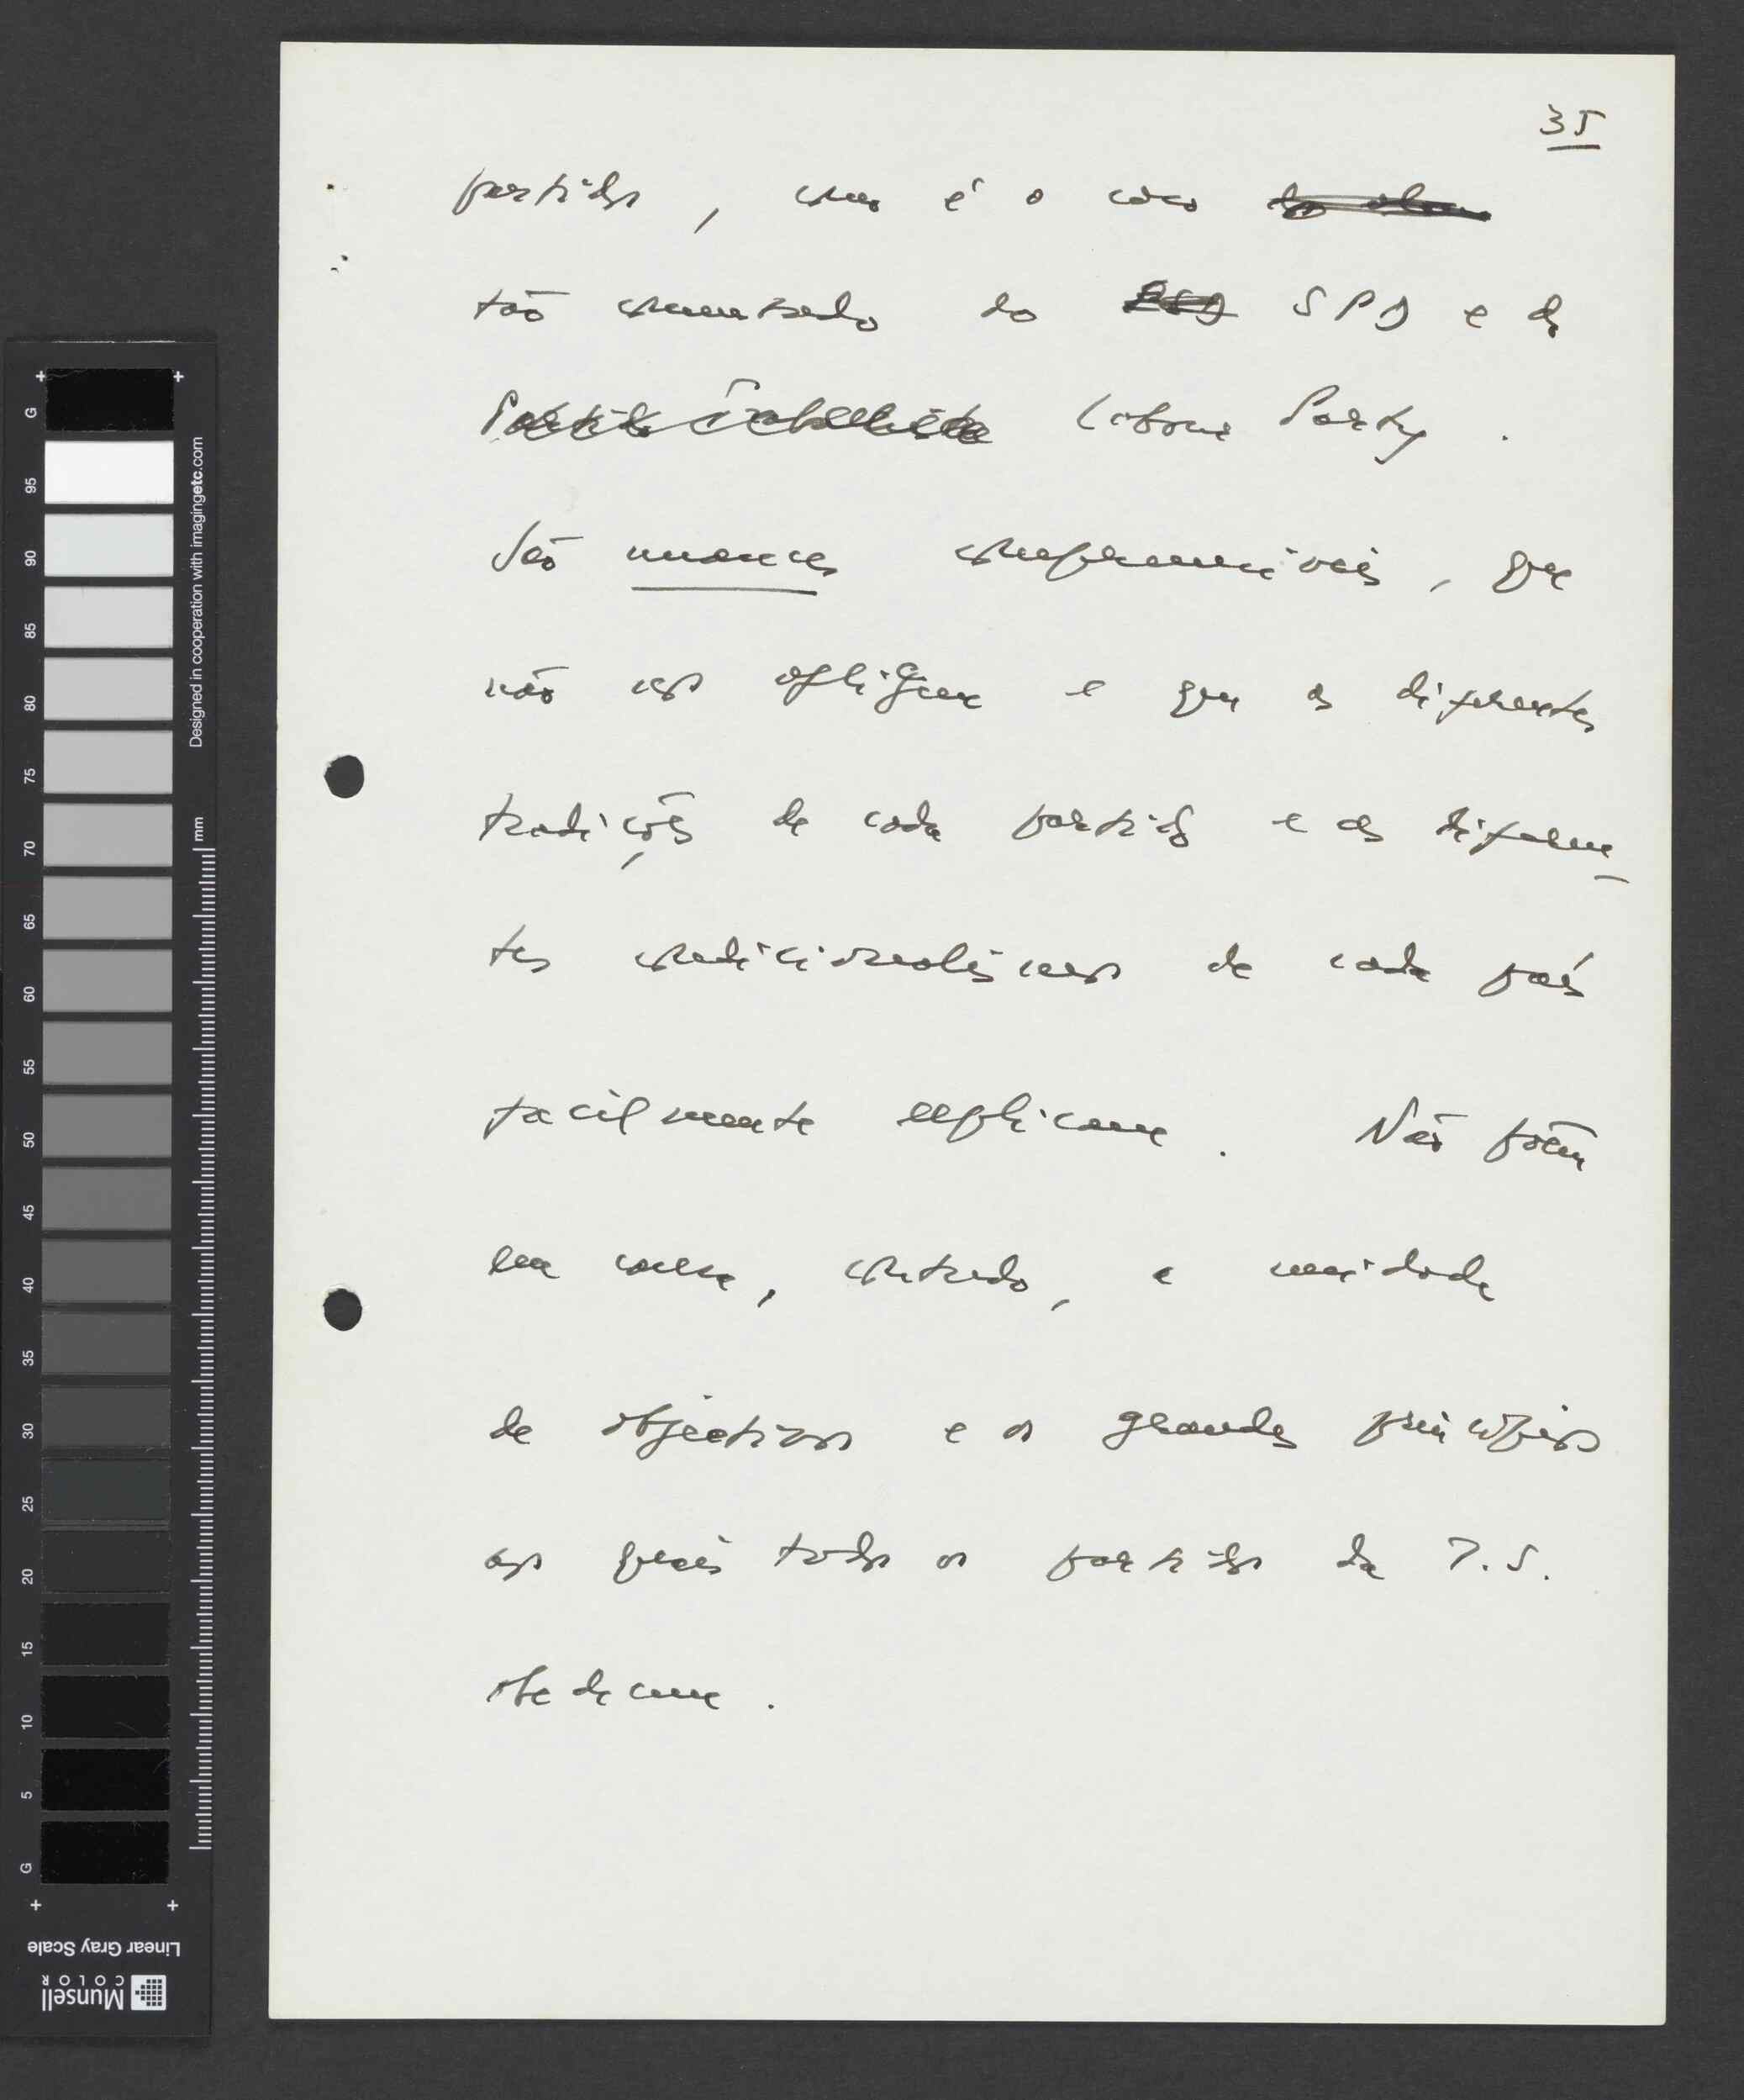 35
partidos, como é o caso
tão comentado do SPD e do
Partido Trabalhista Labour Party.
São nuances compreensíveis, que
não nos afligem e que as diferentes
tradições de cada partido e as diferen-
tes condicionalismos de cada país
facilmente explicam. Não põem
em causa, contudo, a unidade
de objectivos e os grandes princípios
aos quais todos os partidos da I.S.
obedecem.
G 95 90 85 80 75 70 65 60 55 50 45 40 35 30 25 20 15 10 5 G
Designed in cooperation with imagingetc.com
mm
Linear Gray Scale
Munsell
COLOR